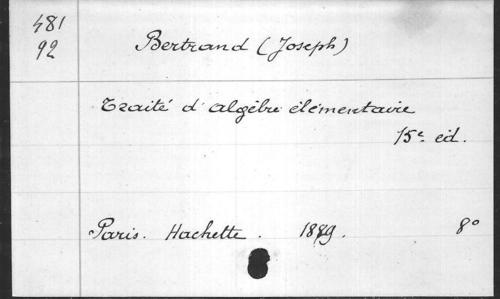 481
92
Bertrand (Joseph)
Traité d'algèbre élémentaire
15e éd.
Paris. Hachette. 1889. 8°